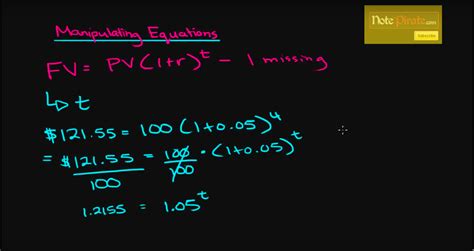 Manipulating Equations
NotePirate.com
SUBSCRIBE
FV = PV(1+r)^t - 1 missing
↳ t
$121.55 = 100 (1+0.05)^4
= $121.55/100 = 100/100 · (1+0.05)^t
1.2155 = 1.05^t